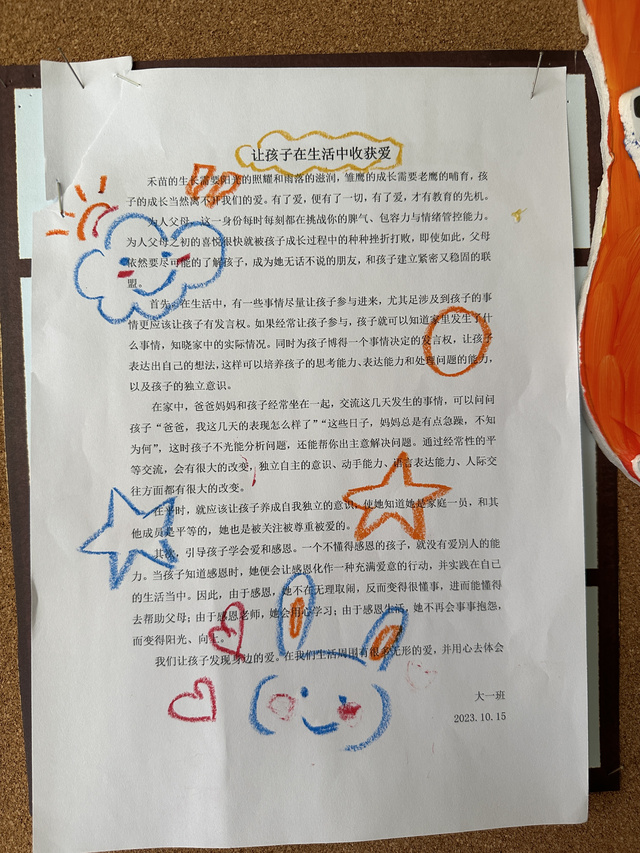 让孩子在生活中收获爱
禾苗的生长需要阳光的照耀和雨落的滋润，雏鹰的成长需要老鹰的哺育，孩
子的成长当然离不开我们的爱。有了爱，便有了一切，有了爱，才有教育的先机。
为人父母，这一身份每时每刻都在挑战你的脾气、包容力与情绪管控能力。
为人父母之初的喜悦很快就被孩子成长过程中的种种挫折打败，即使如此，父母
依然要尽可能的了解孩子，成为她无话不说的朋友，和孩子建立紧密又稳固的联
盟。
首先，在生活中，有一些事情尽量让孩子参与进来，尤其是涉及到孩子的事
情更应该让孩子有发言权。如果经常让孩子参与，孩子就可以知道家里发生了什
么事情，知晓家中的实际情况。同时为孩子博得一个事情决定的发言权，让孩子
表达出自己的想法，这样可以培养孩子的思考能力、表达能力和处理问题的能力，
以及孩子的独立意识。
在家中，爸爸妈妈和孩子经常坐在一起，交流这几天发生的事情，可以问问
孩子“爸爸，我这几天的表现怎么样了”“这些日子，妈妈总是有点急躁，不知
为何”，这时孩子不光能分析问题，还能帮你出主意解决问题。通过经常性的平
等交流，会有很大的改变，独立自主的意识、动手能力、语言表达能力、人际交
往方面都有很大的改变。
在平时，就应该让孩子养成自我独立的意识，使她知道她是家庭一员，和其
他成员是平等的，她也是被关注被尊重被爱的。
其次，引导孩子学会爱和感恩。一个不懂得感恩的孩子，就没有爱别人的能
力。当孩子知道感恩时，她便会让感恩化作一种充满爱意的行动，并实践在自己
的生活当中。因此，由于感恩，她不在无理取闹，反而变得很懂事，进而能懂得
去帮助父母；由于感恩老师，她会用心学习；由于感恩生活，她不再会事事抱怨，
而变得阳光、向上。
我们让孩子发现身边的爱。在我们生活周围有很多无形的爱，并用心去体会
大一班
2023.10.15